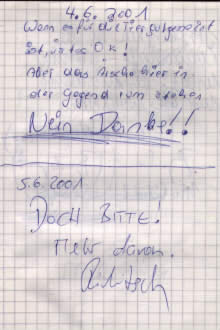 4.6.2001
Wenn es für die Tiere gut gemeint
ist, ist es OK!
Aber das Arschlöcher in
der Gegend rum stehen
Nein Danke!!
5.6.2001
DOCH BITTE!
Mehr davon.